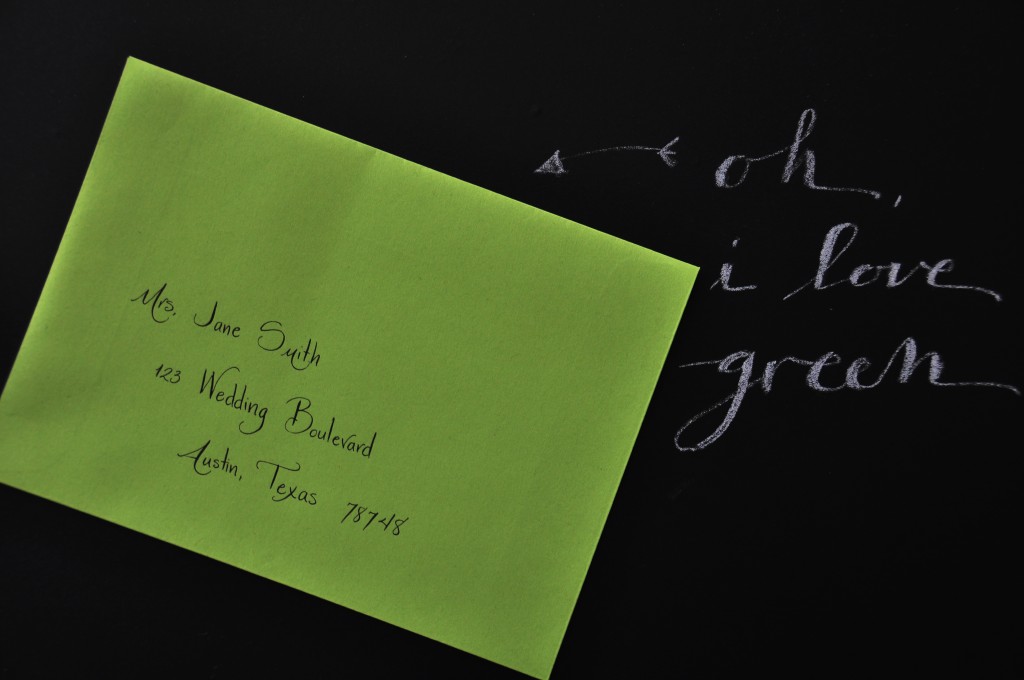 Mrs. Jane Smith
123 Wedding Boulevard
Austin, Texas 78748
oh,
i love
green